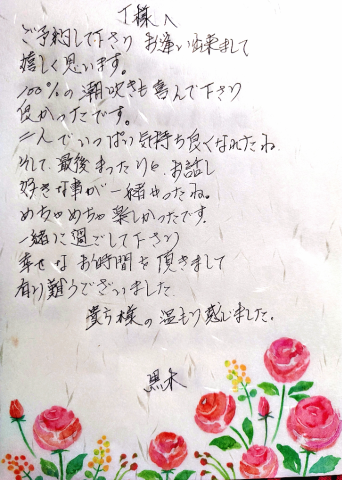 T様へ
ご予約して下さり お逢い出来まして
嬉しく思います。
100%の潮吹きも喜んで下さり
良かったです。
二人でいっぱい気持ち良くなれたね
そして、最後まったりと、お話し
好きな事が一緒やったね。
めちゃめちゃ楽しかったです。
一緒に過ごして下さり
幸せな お時間を頂きまして
有り難うでざいました。
貴方様の温もり感じました。
黒木